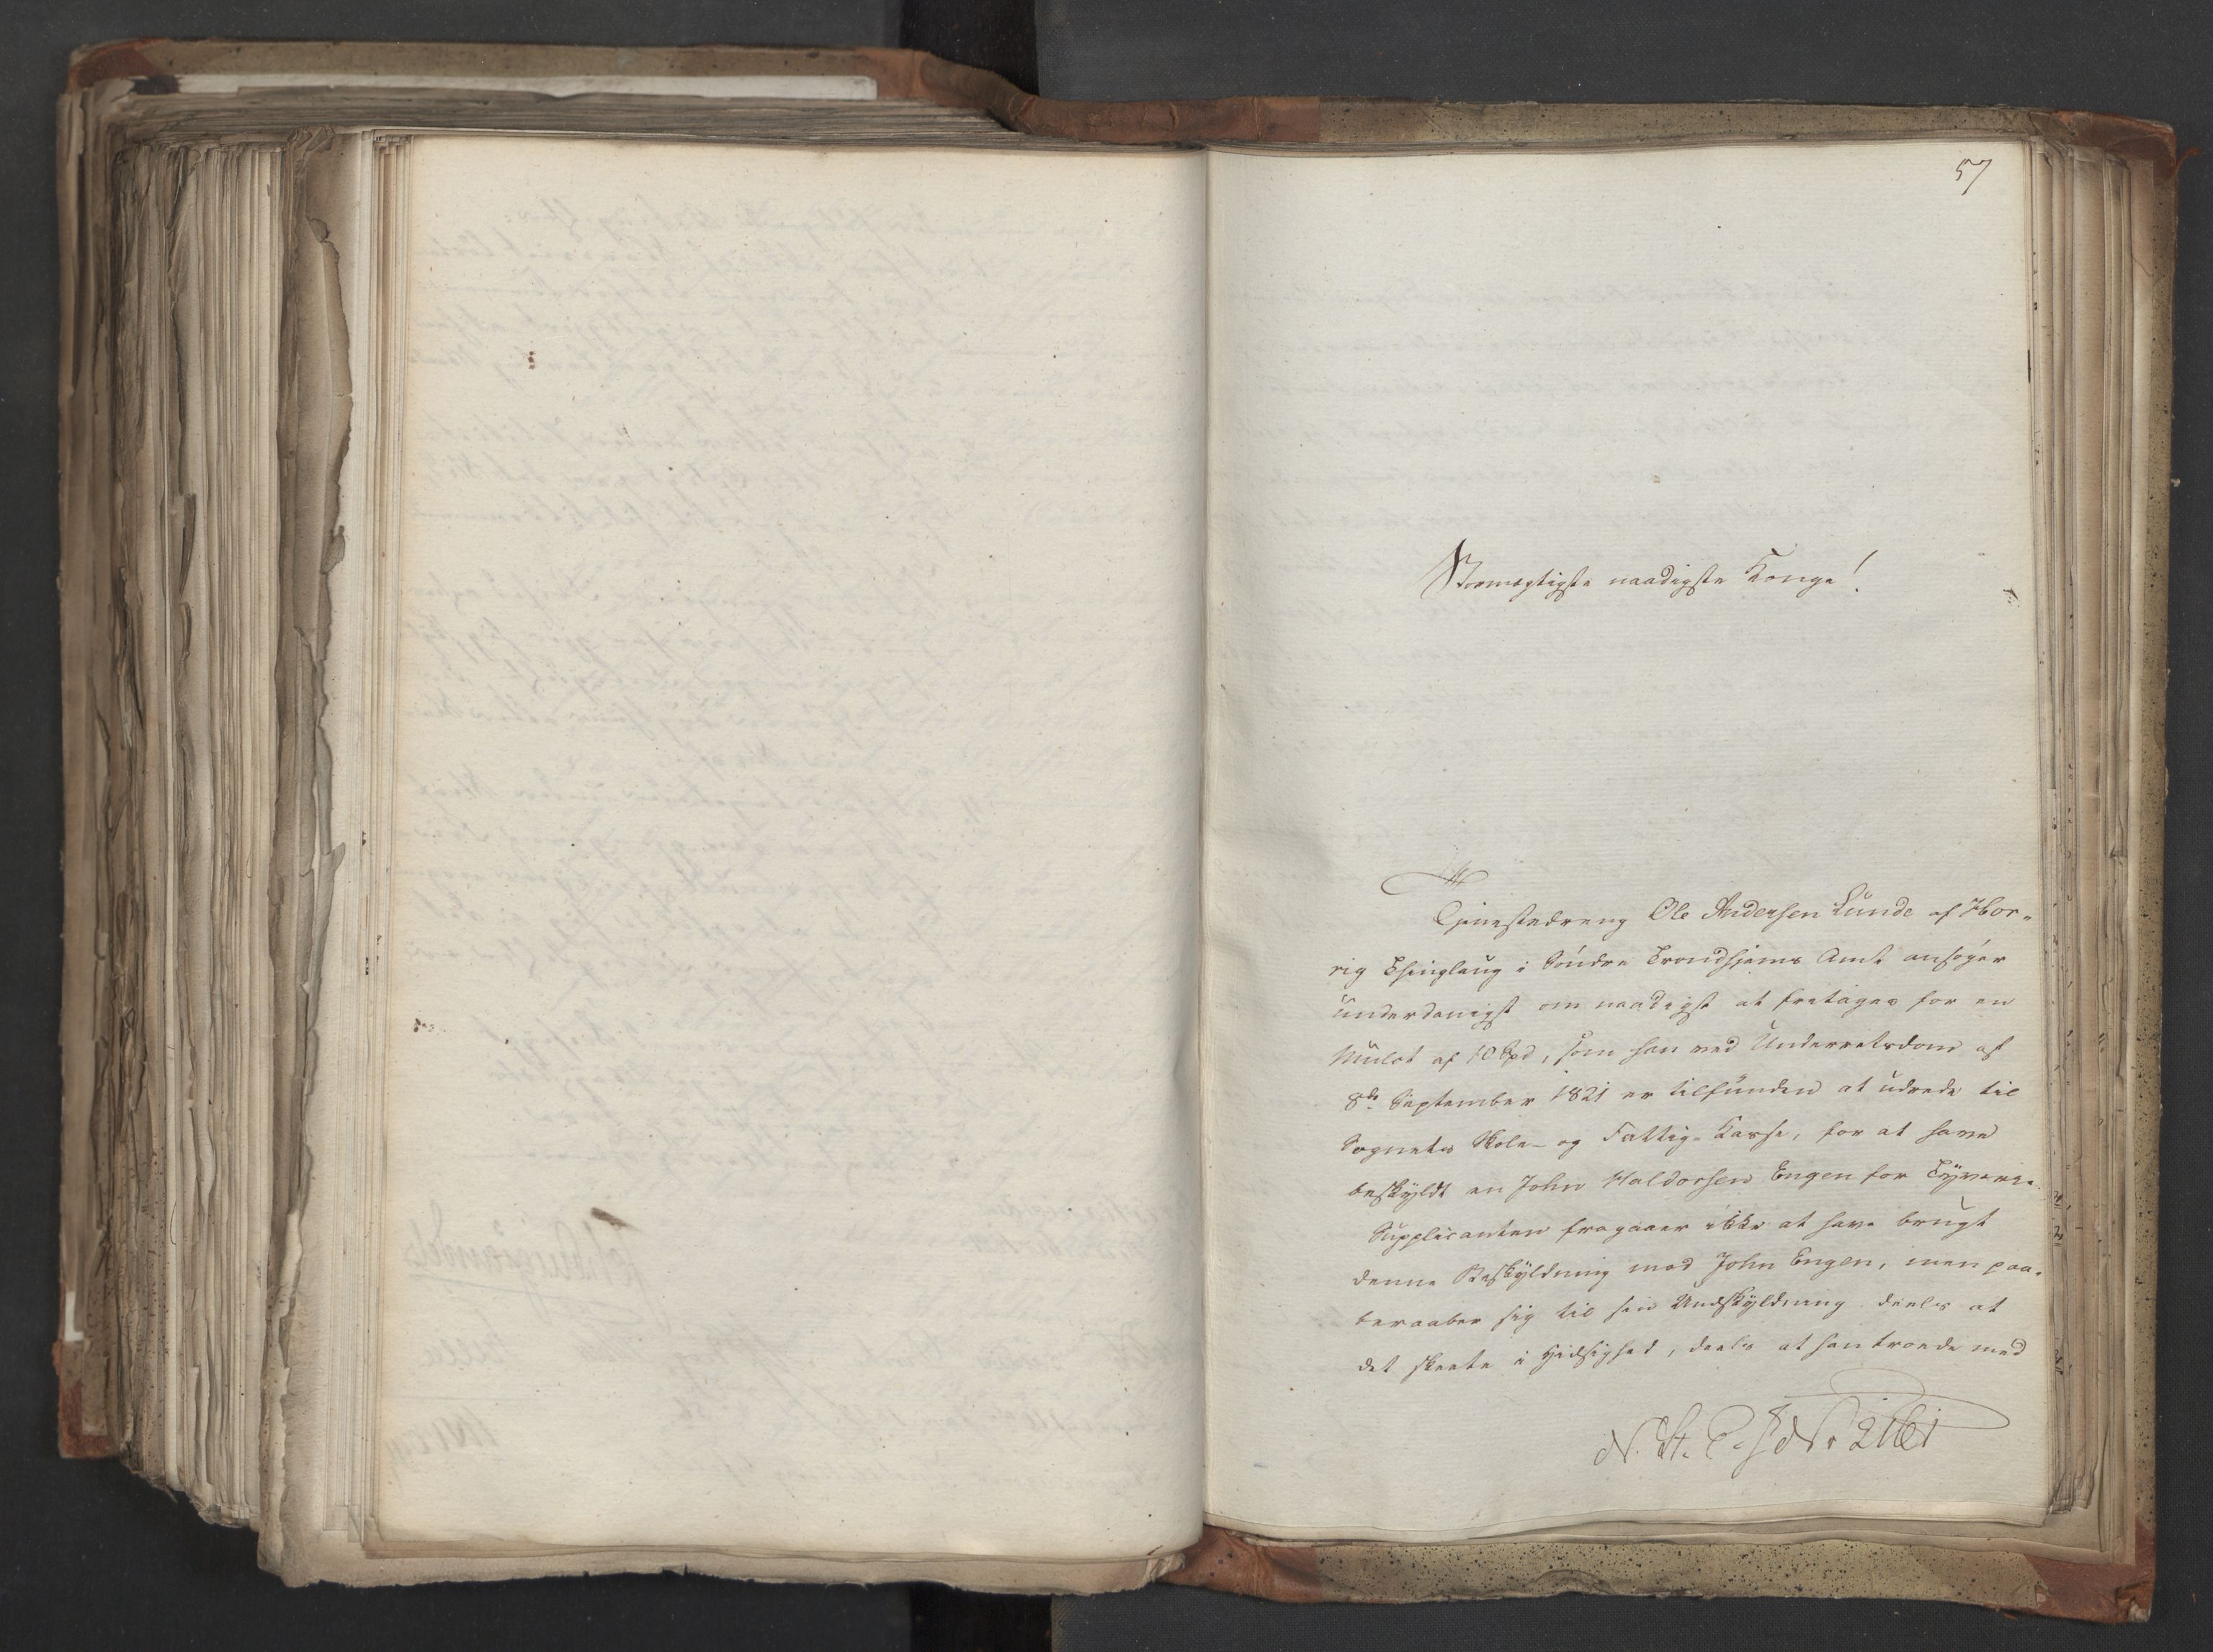 57
Stormægtigste naadigste Konge!
Tjenestedreng Ole Andersen Lunde af
rig Thinglaug i Söndre Trondhjems Amt ansøger
underdanigst om naadigst at fritages for en
Mulct af 10 Spd, som han ved Underretsdom af
8de September 1821 er tilfunden at udrede til
Sognets Skole- og Fattig-Kasse, for at have
beskyldt en John Haldorsen Engen for Tyverie.
Supplicanten fragaaer ikke at have brugt
denne Beskyldning mod John Engen, men paa-
beraaber sig til sin Undskyldning deels at
det skeete i Hidsighed, deels at han troede med